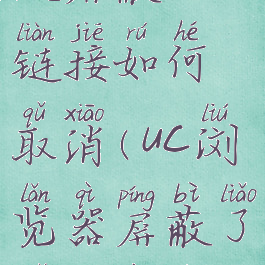 liàn jiē rú hé
链接如何
qǔ xiāo liú
取消(UC浏
lǎn qì píng bì liǎo
览器屏蔽了